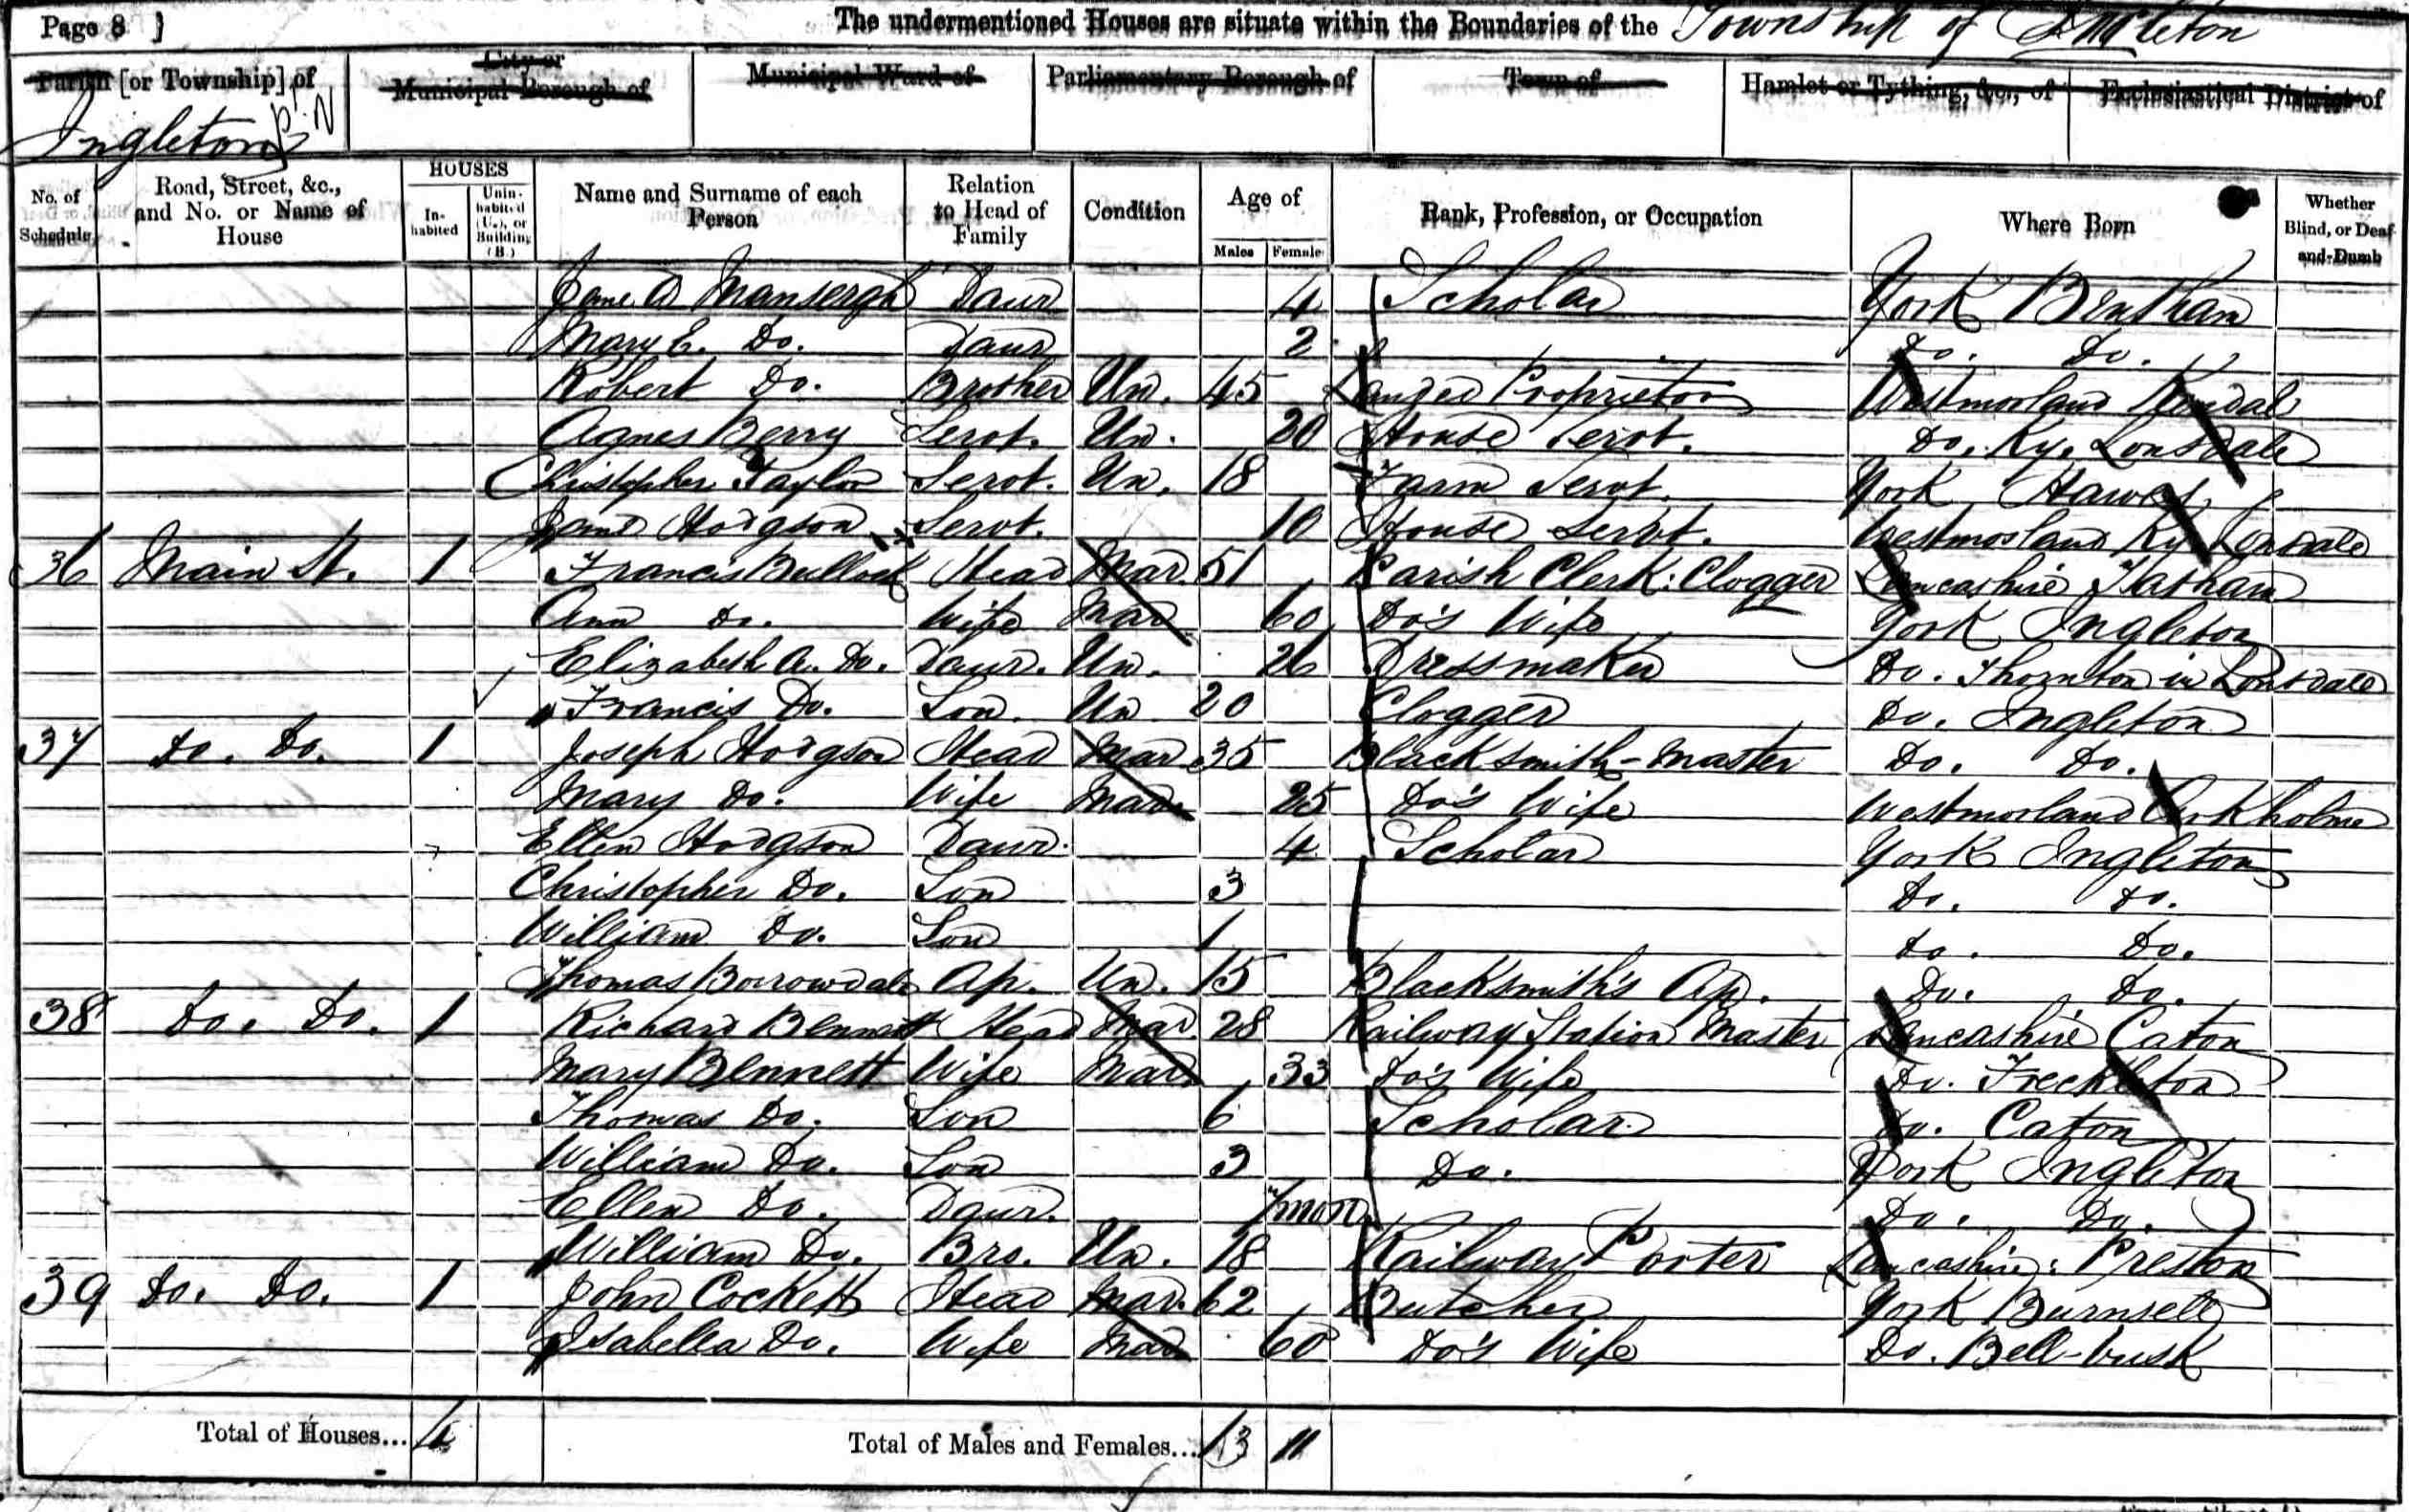 Page 8 ] The undermentioned Houses are situate within the Boundaries of the Township of Ingleton
Parish [or Township] of City or Municipal Borough of Municipal Ward of Parliamentary Borough of Town of Hamlet or Tything, &c., of Ecclesiastical District of
Ingleton
No. of Schedule Road, Street, &c., and No. or Name of House HOUSES Inhabited Uninhabited (U.), or Building (B.) Name and Surname of each Person Relation to Head of Family Condition Age of Males Female Rank, Profession, or Occupation Where Born Whether Blind, or Deaf and-Dumb
Jane A Mansergh Daur 4 Scholar York Bentham
Mary E. Do. Daur 2 Do. Do.
Robert Do. Brother Un. 45 Landed Proprietor Westmorland Kendal
Agnes Berry Servt. Un. 20 House Servt. Do. Ky. Lonsdale
Christopher Taylor Servt. Un. 18 Farm Servt. York Hawes
Jane Hodgson Servt. 10 House Servt. Westmorland Ky Lonsdale
36 Main St. 1 Francis Bullock Head Mar. 51 Parish Clerk: Clogger Lancashire Tatham
Ann Do. Wife Mar 60 Do's Wife York Ingleton
Elizabeth A. Do. Daur. Un. 26 Dressmaker Do. Thornton in Lonsdale
Francis Do. Son. Un 20 Clogger Do. Ingleton
37 Do. Do. 1 Joseph Hodgson Head Mar 35 Blacksmith-Master Do. Do.
Mary Do. Wife Mar. 25 Do's Wife Westmorland Arkholme
Ellen Hodgson Daur. 4 Scholar York Ingleton
Christopher Do. Son 3 Do. Do.
William Do. Son 1 Do. Do.
Thomas Borrowdale Ap. Un. 15 Blacksmith's Ap. Do. Do.
38 Do. Do. 1 Richard Bennett Head Mar. 28 Railway Station Master Lancashire Caton
Mary Bennett Wife Mar. 33 Do's Wife Do. Freckleton
Thomas Do. Son 6 Scholar Do. Caton
William Do. Son 3 Do. York Ingleton
Ellen Do. Daur. 7 mon Do. Do.
William Do. Bro. Un. 18 Railway Porter Lancashire: Preston
39 Do. Do. 1 John Cockett Head Mar. 62 Butcher York Burnsell
Isabella Do. Wife Mar 60 Do's Wife Do. Bell-busk
Total of Houses... 4 Total of Males and Females... 13 11